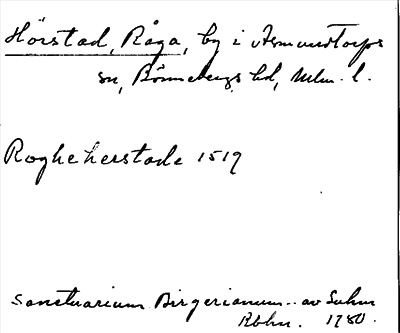 Hörstad, Råga, by i Asmundtorps
sn, Rönnebergs hd, Mlm. l.
Rogheherstade 1519
Sanctuarium Birgerianum.. av Suhm
Kbhn. 1780.